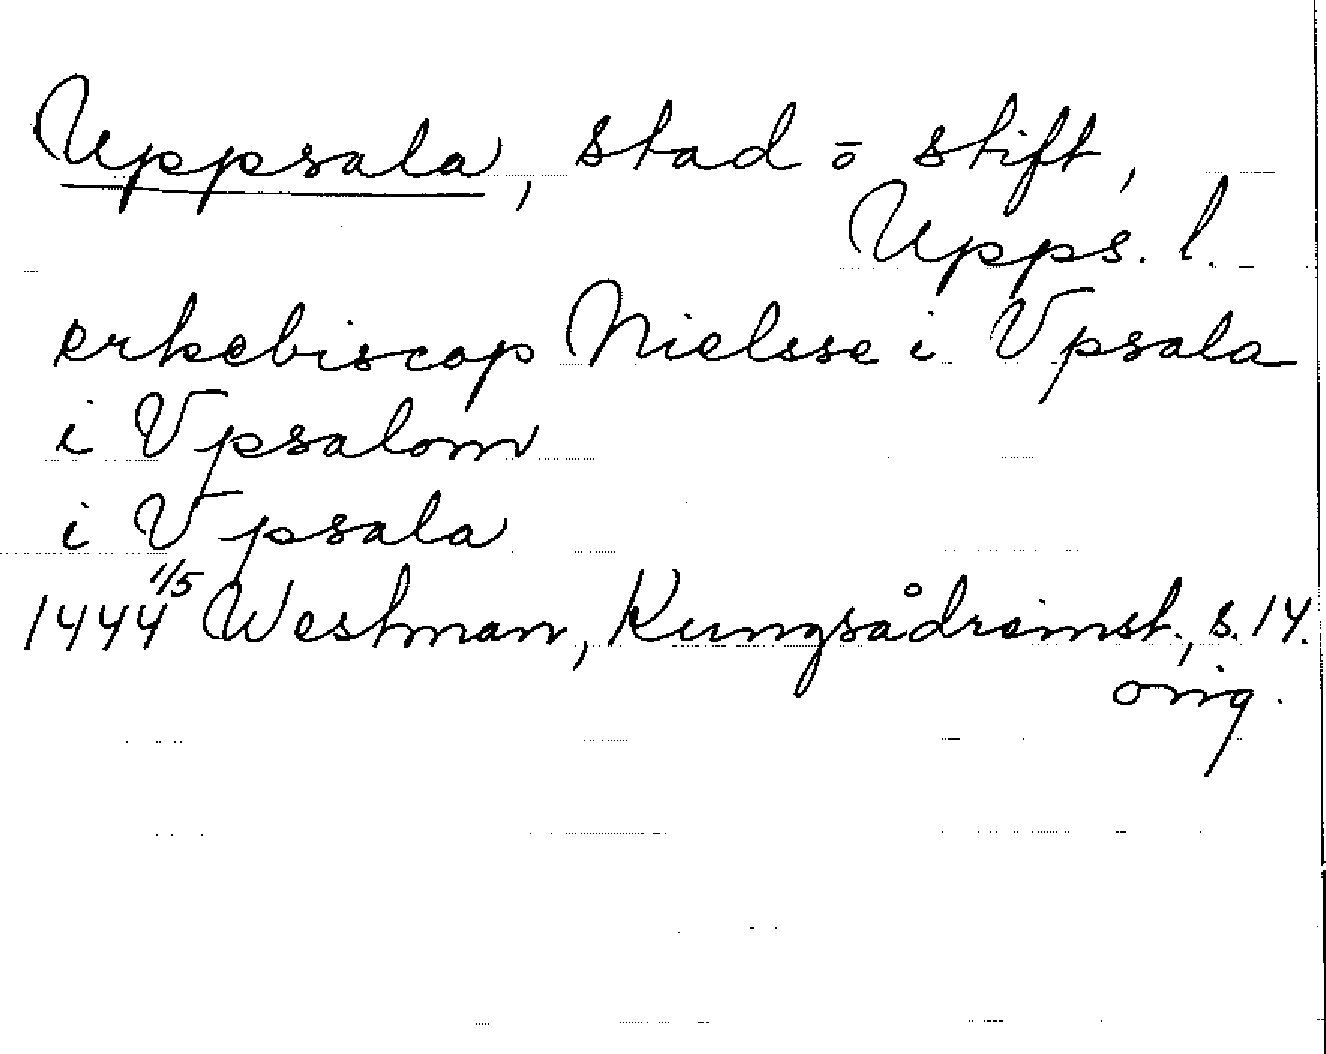 Uppsala, stad o stift,
Upps. l.
erkebiscop Nielsse i Vpsala
i Vpsalom
i Vpsala
1444 1/5 Westman, Kungsådreinst., s. 14.
orig.